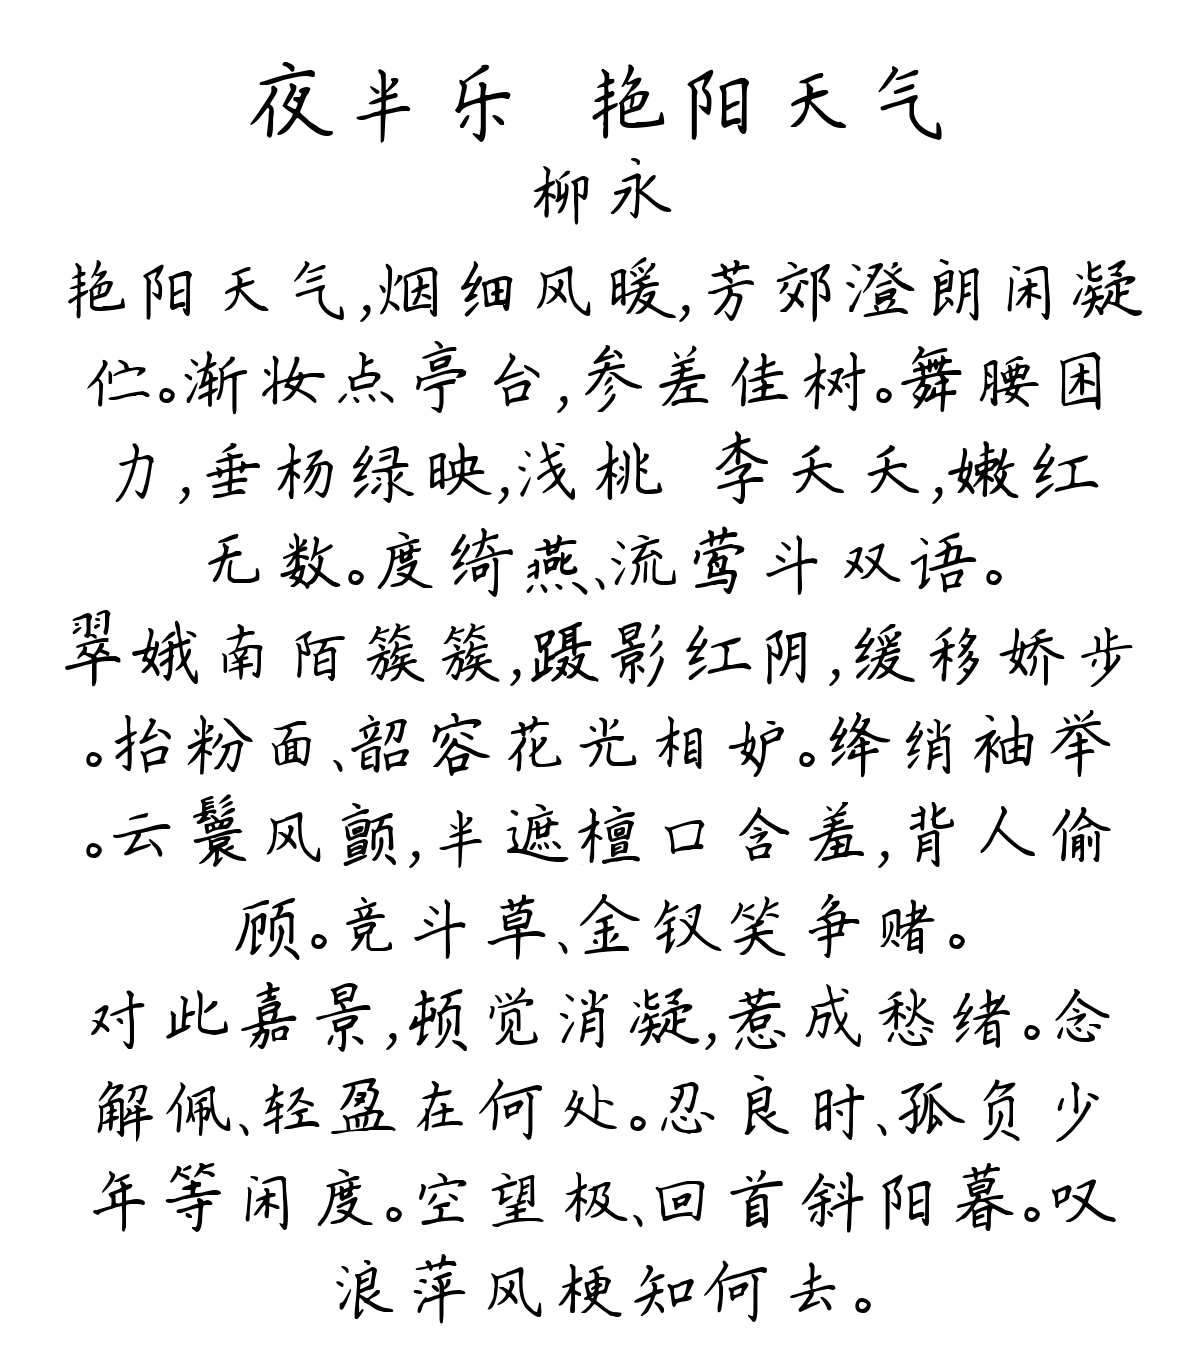 夜半乐 艳阳天气
柳永
艳阳天气,烟细风暖,芳郊澄朗闲凝
伫。渐妆点亭台,参差佳树。舞腰困
力,垂杨绿映,浅桃 李夭夭,嫩红
无数。度绮燕、流莺斗双语。
翠娥南陌簇簇,蹑影红阴,缓移娇步
。抬粉面、韶容花光相妒。绛绡袖举
。云鬟风颤,半遮檀口含羞,背人偷
顾。竞斗草、金钗笑争赌。
对此嘉景,顿觉消凝,惹成愁绪。念
解佩、轻盈在何处。忍良时、孤负少
年等闲度。空望极、回首斜阳暮。叹
浪萍风梗知何去。